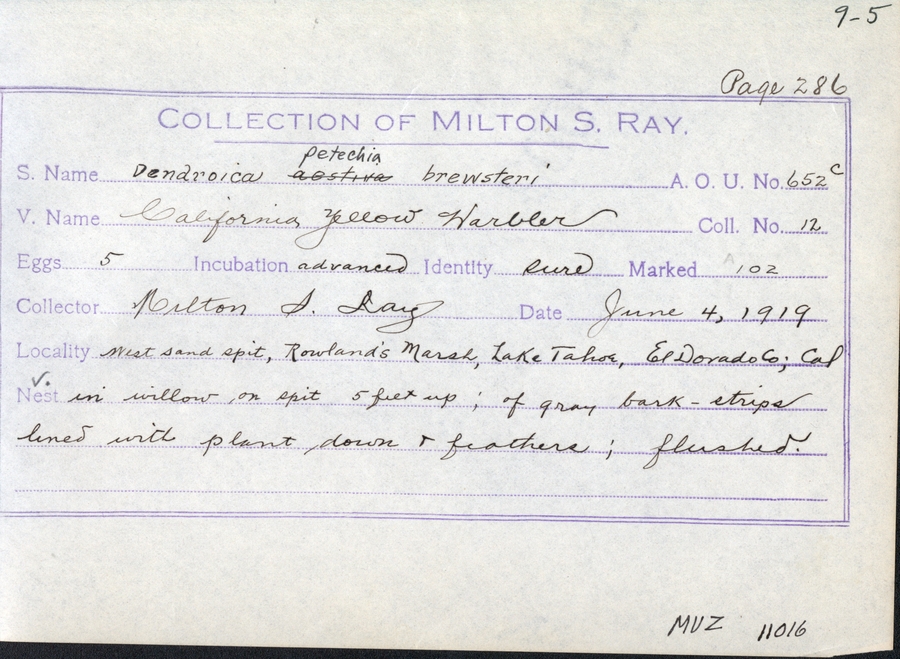 9-5
Page 286
COLLECTION OF MILTON S. RAY.
petechia
S. Name Dendroica aestiva brewsteri A. O. U. No. 652c
V. Name California Yellow Warbler Coll. No. 12
Eggs 5 Incubation advanced Identity sure Marked 102
Collector Milton S. Ray Date June 4, 1919
Locality West sand spit, Rowland's Marsh, Lake Tahoe, El Dorado Co; Cal
Nest in willow on spit 5 feet up; of gray bark-strips
lined with plant down & feathers; flushed.
MVZ 11016